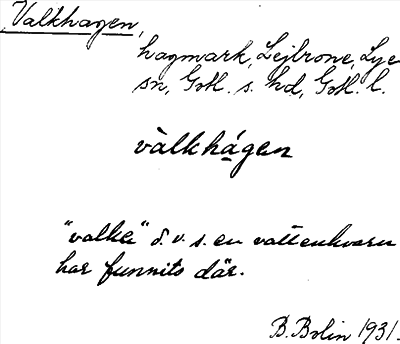 Valkhagen,
hagmark, Lejbrone, Lye
sn, Gotl. s. hd, Gotl. l.
vàlkhá̱gen
"valka" d.v.s. en vattenkvarn
har funnits där.
B. Bolin 1931.